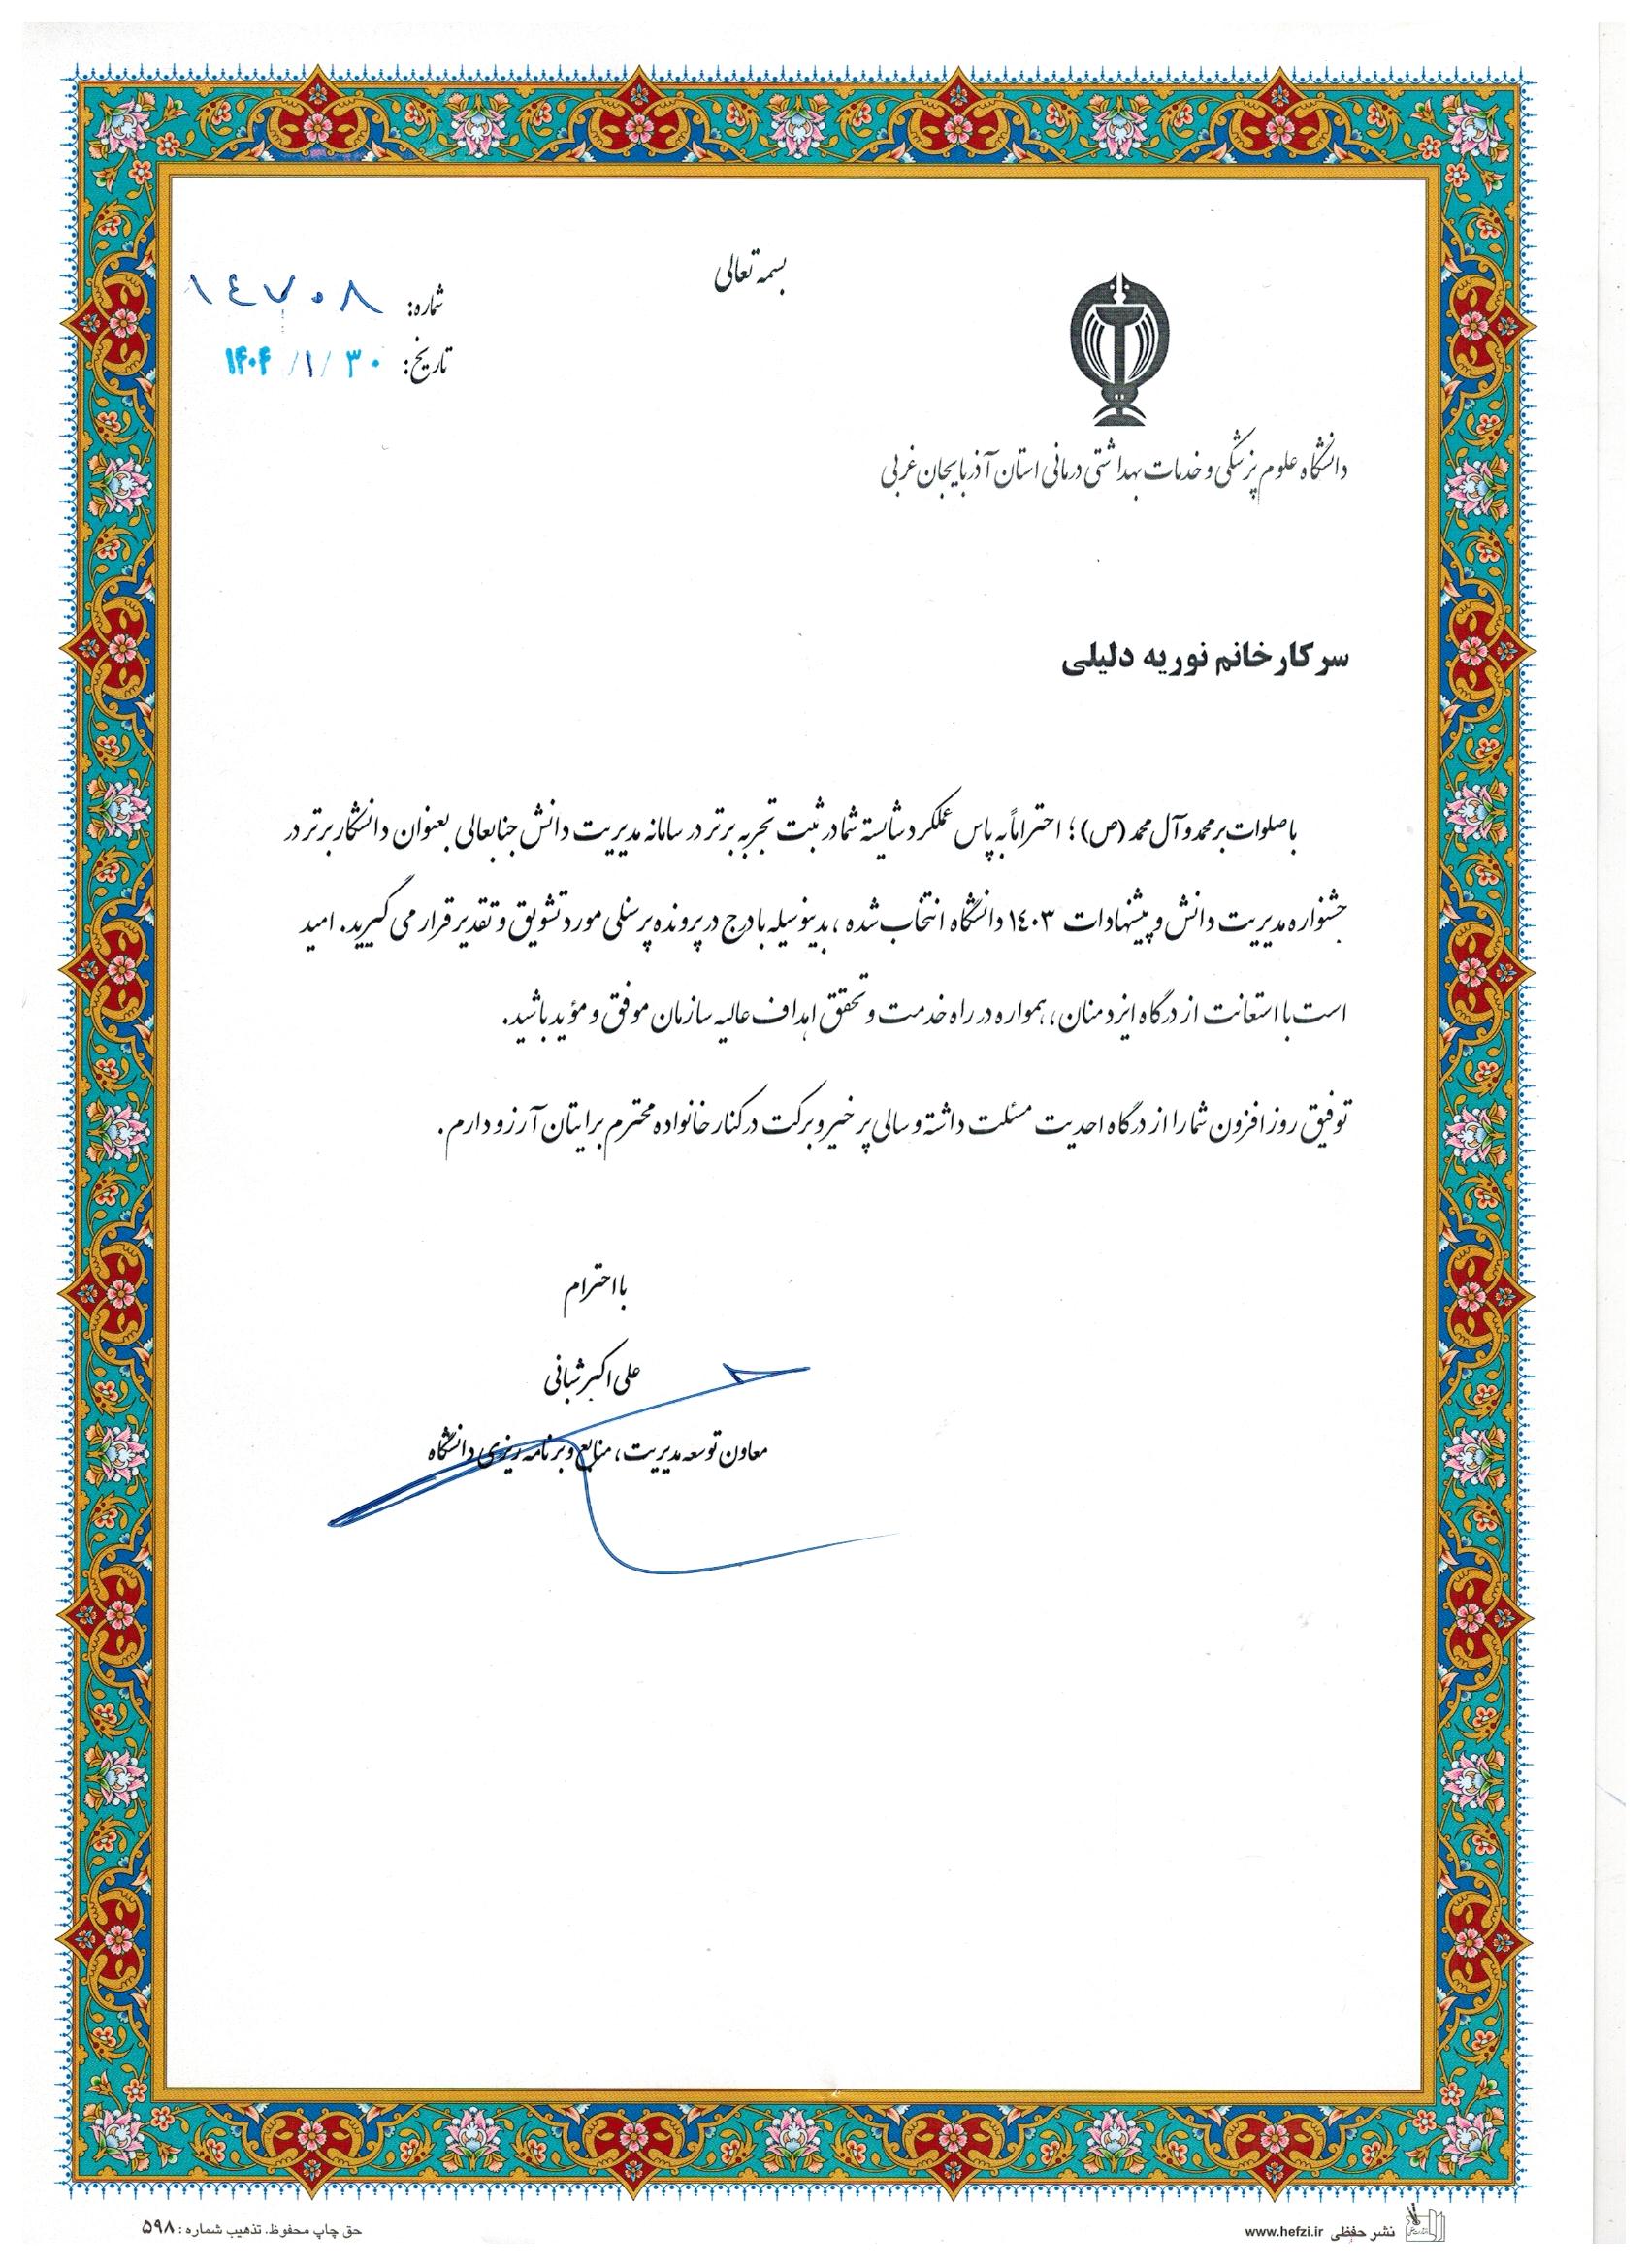 بسمه تعالی
شماره: ۱۴۷۰۸
تاریخ: ۱۴۰۴/۱/۳۰
دانشگاه علوم پزشکی و خدمات بهداشتی درمانی استان آذربایجان غربی
سرکار خانم نوریه دلیلی
با صلوات بر محمد و آل محمد (ص)؛ احتراماً به پاس عملکرد شایسته شما در ثبت تجربه برتر در سامانه مدیریت دانش جنابعالی بعنوان دانشکار برتر در
جشنواره مدیریت دانش و پیشنهادات ۱۴۰۳ دانشگاه انتخاب شده، بدینوسیله با درج در پرونده پرسنلی مورد تشویق و تقدیر قرار می گیرید. امید
است با استعانت از درگاه ایزد منان، همواره در راه خدمت و تحقق اهداف عالیه سازمان موفق و مؤید باشید.
توفیق روز افزون شما را از درگاه احدیت مسئلت داشته و سالی پر خیر و برکت در کنار خانواده محترم برایتان آرزو دارم.
با احترام
علی اکبر شبانی
معاون توسعه مدیریت، منابع و برنامه ریزی دانشگاه
حق چاپ محفوظ. تذهیب شماره: ۵۹۸
نشر حفظی www.hefzi.ir